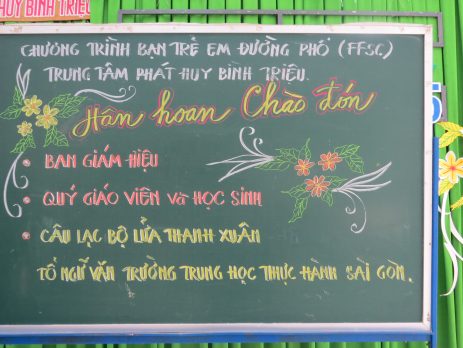 HUY BÌNH TRIỆU
CHƯƠNG TRÌNH BẠN TRẺ EM ĐƯỜNG PHỐ (FFSC)
TRUNG TÂM PHÁT HUY BÌNH TRIỆU.
Hân hoan Chào đón
• BAN GIÁM HIỆU
• QUÝ GIÁO VIÊN VÀ HỌC SINH
• CÂU LẠC BỘ LỬA THANH XUÂN
TỔ NGỮ VĂN TRƯỜNG TRUNG HỌC THỰC HÀNH SÀI GÒN.